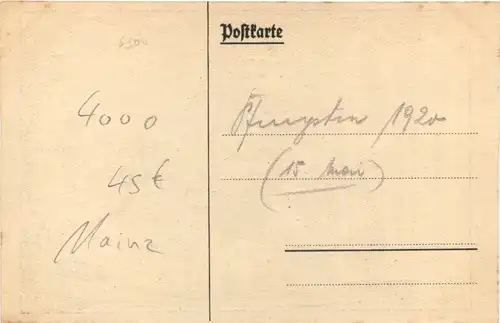 6500
4000
45€
Mainz
Postkarte
Pfingsten 1920
(15 Mai)